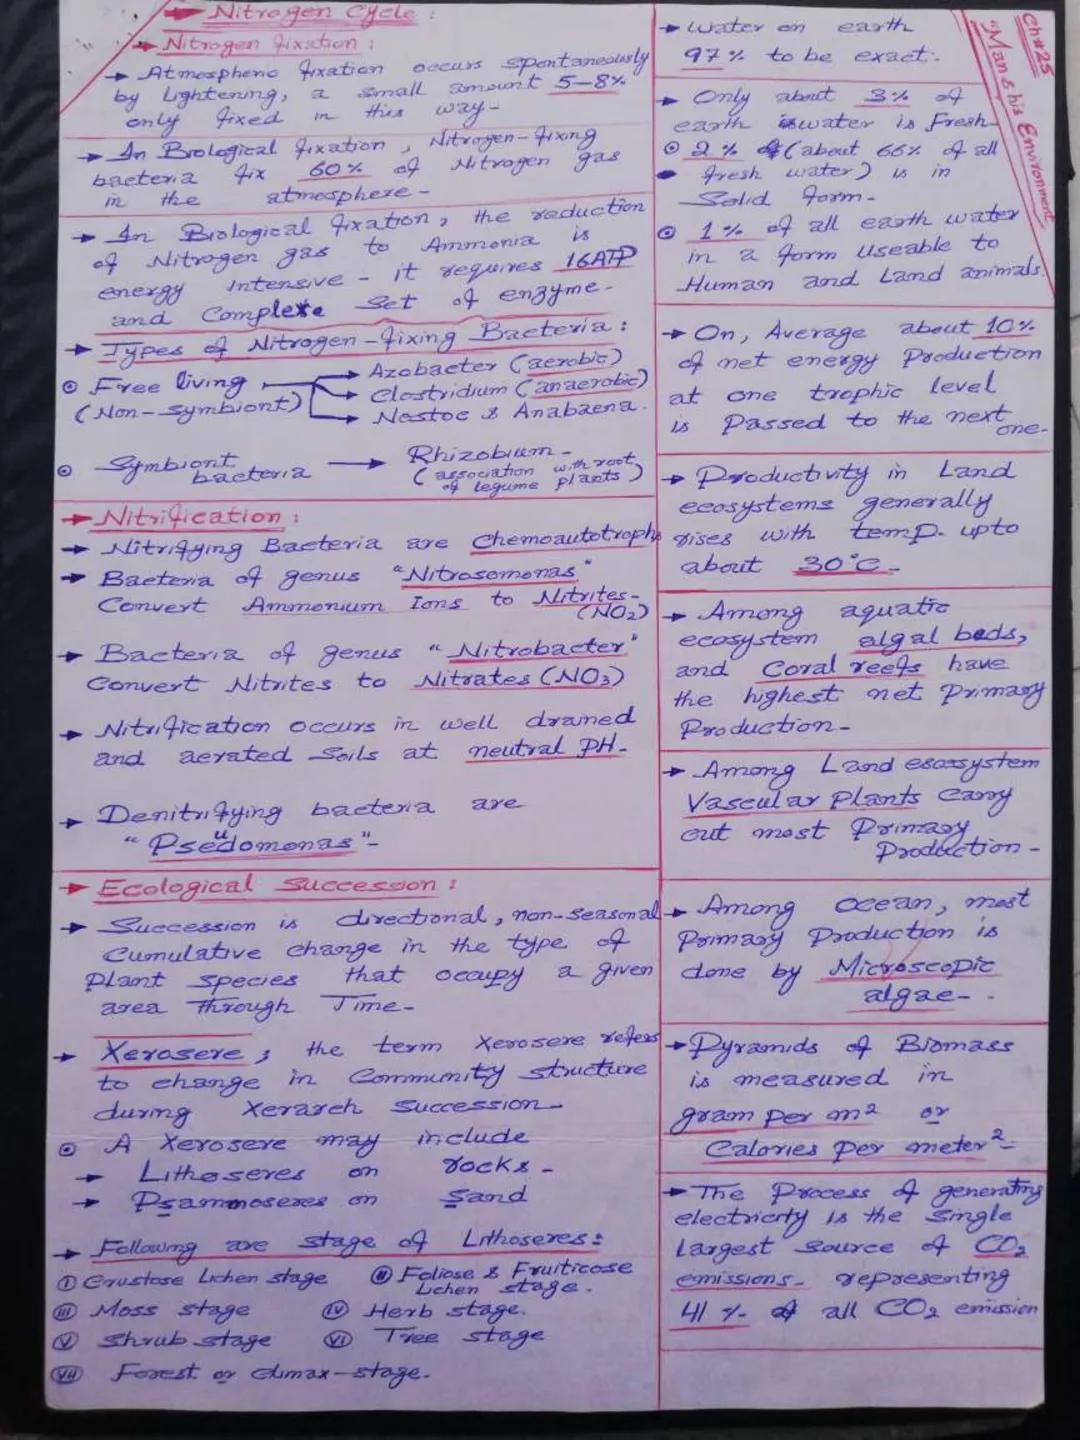 → Nitrogen Cycle :
→ Nitrogen fixation :
→ Atmospheric fixation occurs spontaneously
by Lightening, a small amount 5-8%
only fixed in this way-
→ In Biological fixation, Nitrogen-fixing
bacteria fix 60% of Nitrogen gas
in the atmosphere-
→ In Biological fixation, the reduction
of Nitrogen gas to Ammonia is
energy intensive - it requires 16ATP
and Complete Set of enzyme-
→ Types of Nitrogen-fixing Bacteria :
⊙ Free living → Azobacter (aerobic)
(Non-symbiont) → Clostridium (anaerobic)
→ Nostoc & Anabaena.
⊙ Symbiont bacteria → Rhizobium-
(association with root
of legume plants)
→ Nitrification :
→ Nitrifying Bacteria are Chemoautotrophs
→ Bacteria of genus "Nitrosomonas"
Convert Ammonium Ions to Nitrites-
(NO2)
→ Bacteria of genus "Nitrobacter"
Convert Nitrites to Nitrates (NO3)
→ Nitrification occurs in well drained
and aerated Soils at neutral PH-
→ Denitrifying bacteria are
"Pseudomonas"-
→ Ecological Succession :
→ Succession is directional, non-seasonal
Cumulative change in the type of
Plant species that occupy a given
area through Time-
→ Xerosere ; the term Xerosere refers
to change in Community structure
during Xerarch Succession-
⊙ A Xerosere may include
→ Lithoseres on rocks-
→ Psammoseres on Sand
→ Following are stage of Lithoseres :
(I) Crustose Lichen stage (II) Foliose & Fruiticose
Lichen stage.
(III) Moss stage (IV) Herb stage.
(V) Shrub stage (VI) Tree stage
(VII) Forest or climax-stage.
Ch#25
"Man & his Environment
→ water on earth
97% to be exact.
→ Only about 3% of
earth is water is Fresh-
⊙ 2% of (about 66% of all
fresh water) is in
Solid form-
⊙ 1% of all earth water
in a form useable to
Human and Land animals.
→ On, Average about 10%
of net energy Production
at one trophic level
is Passed to the next
one-
→ Productivity in Land
ecosystems generally
rises with temp. upto
about 30°C-
→ Among aquatic
ecosystem algal beds,
and Coral reefs have
the highest net Primary
Production-
→ Among Land esossystem
Vascular Plants Carry
out most Primary
Production-
→ Among ocean, most
Primary Production is
done by Microscopic
algae-
→ Pyramids of Biomass
is measured in
gram per m2 or
Calories Per meter2-
→ The Process of generating
electricity is the single
largest source of CO2
emissions- representing
41% of all CO2 emission